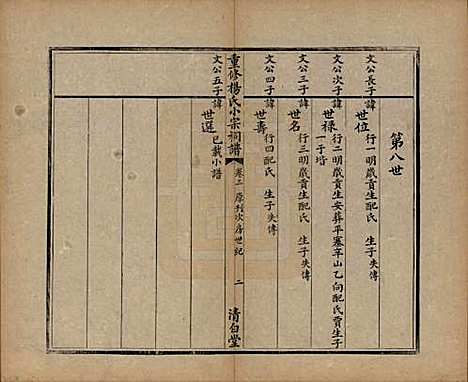 第八世
文公長子諱
世位
行一明歲貢生配氏 生子失傳
文公次子諱
世祿
行二明歲貢生安葬平寨辛山乙向配氏賈生子
一子培
文公三子諱
世名
行三明歲貢生配氏 生子失傳
文公四子諱
世壽
行四配氏 生子失傳
重修楊氏小宗祠譜
卷二 原刊次房世紀 二 清白堂
文公五子諱
世選
已載小譜